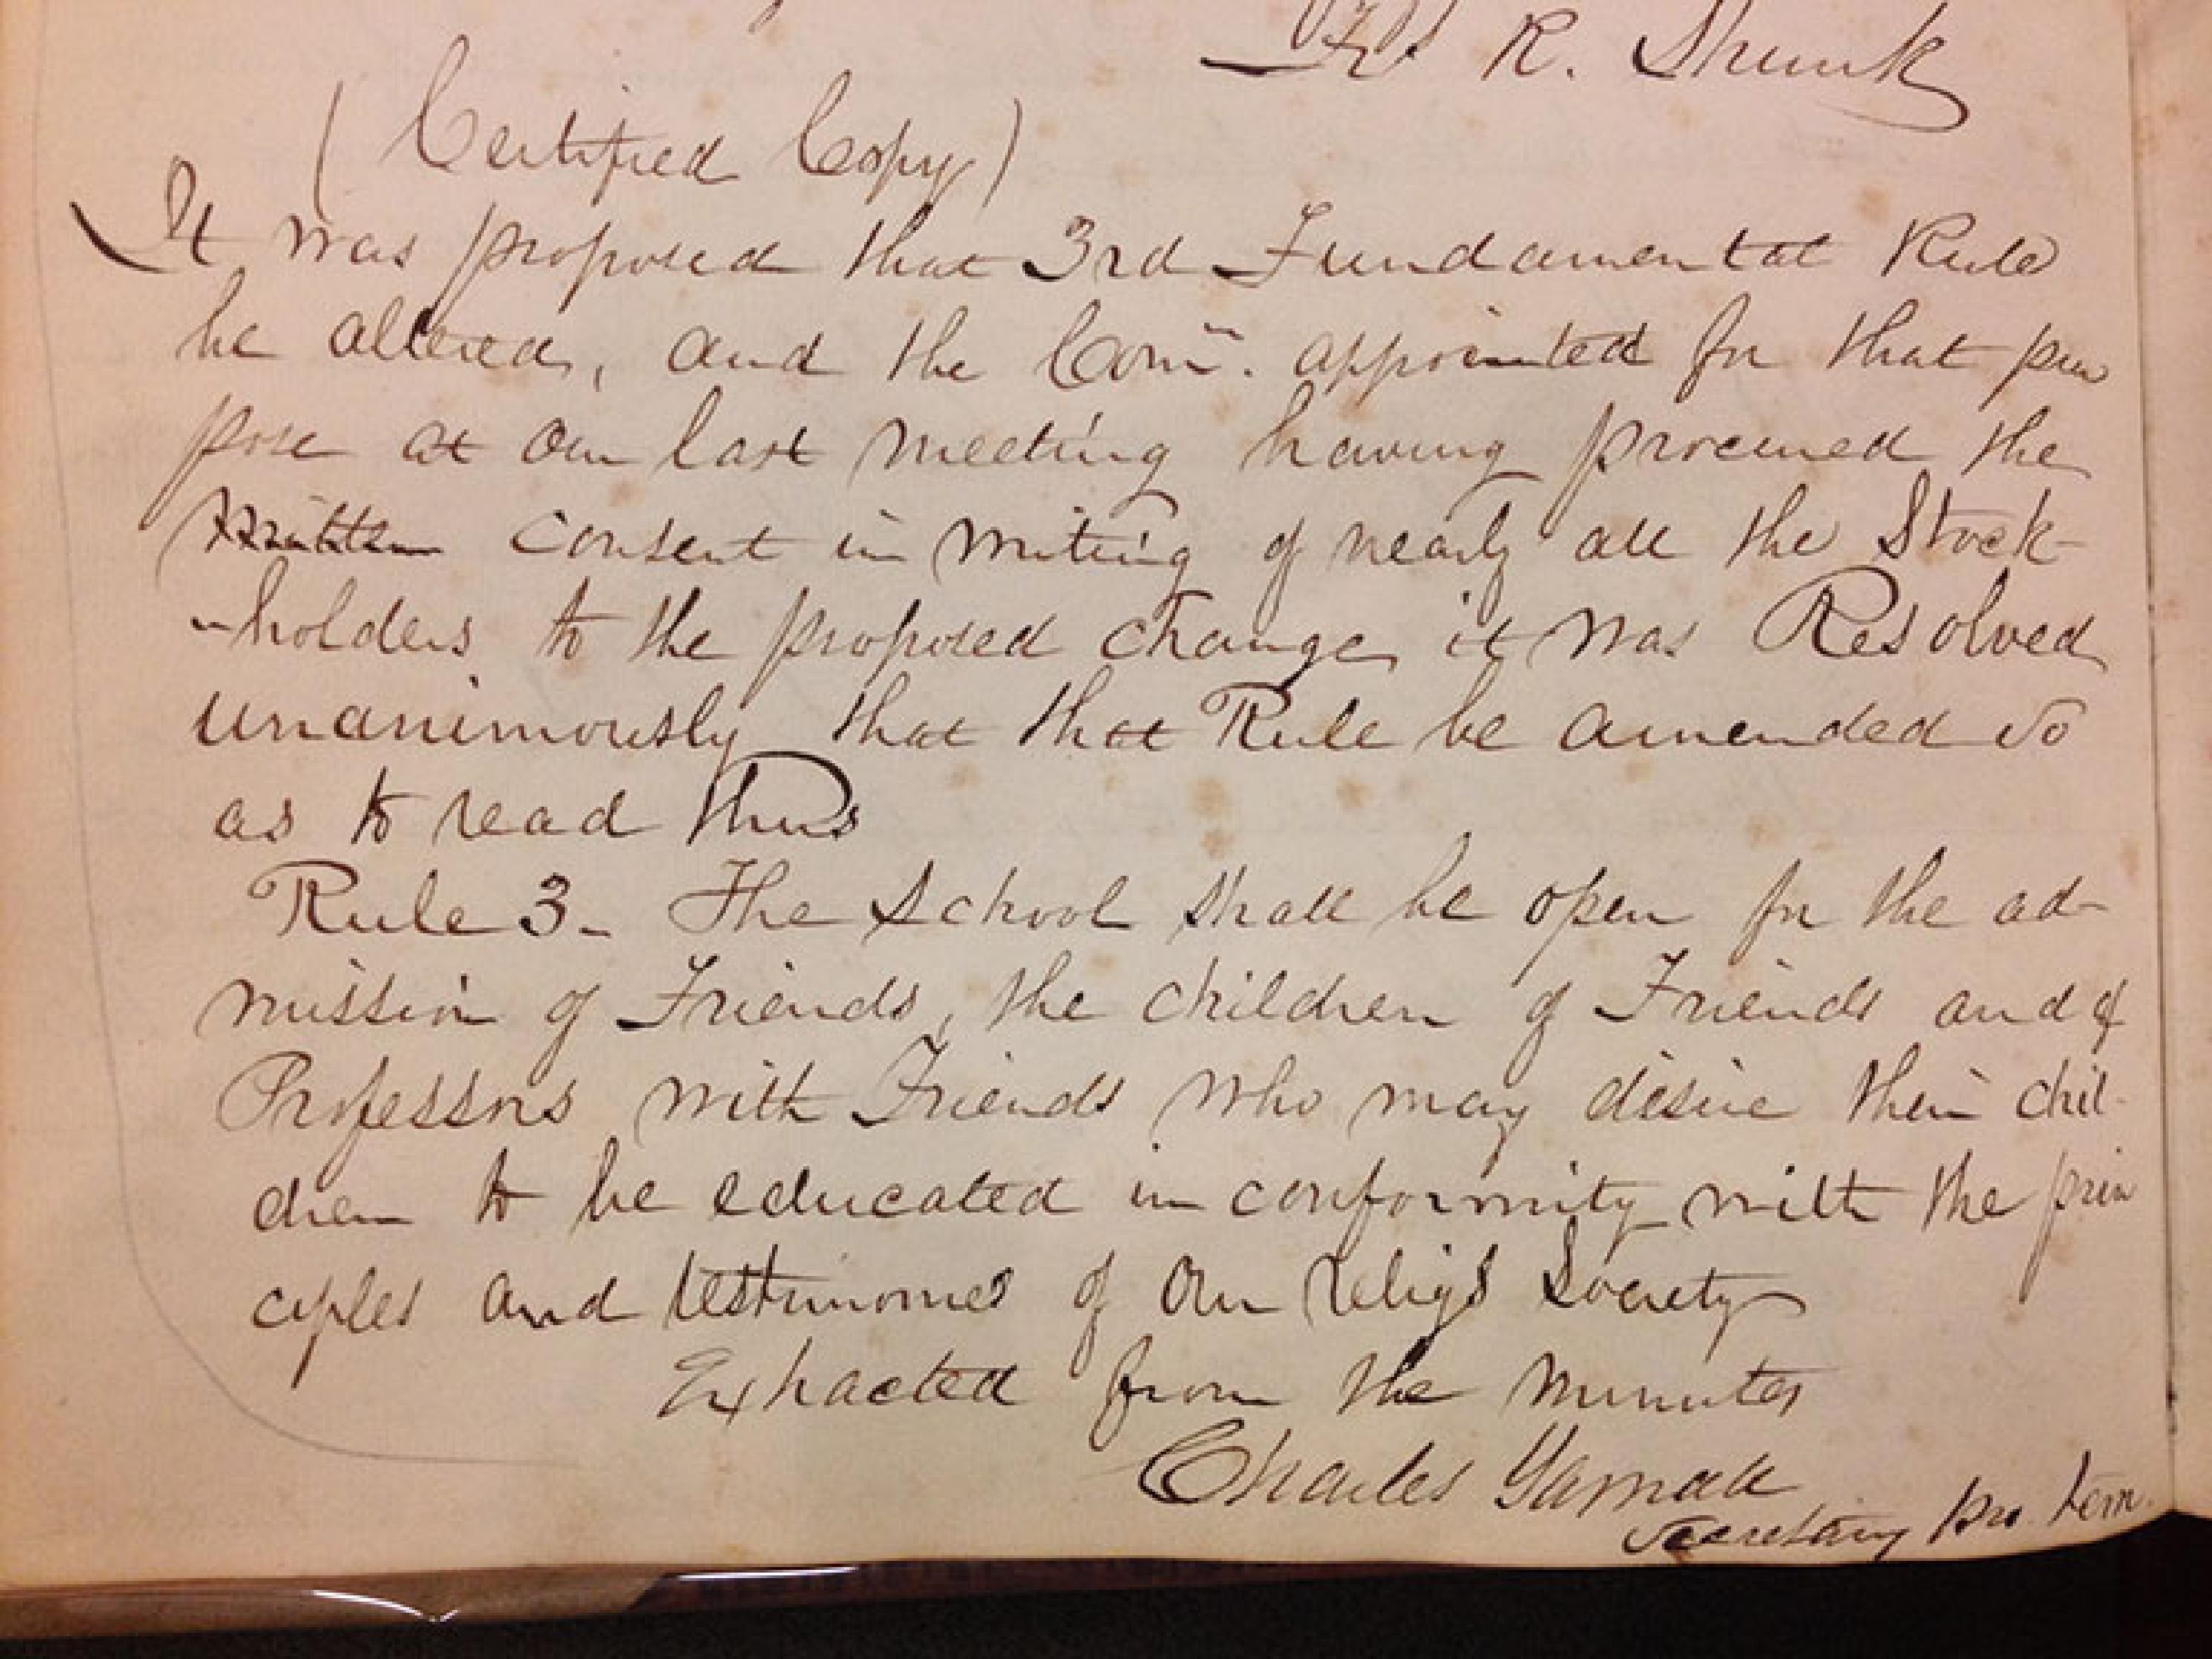 Fs R. Shunk
(Certified Copy)
It was proposed that 3rd Fundamental Rule
be altered, and the Com. appointed for that pur
pose at our last meeting having procured the
written consent in writing of nearly all the Stock-
-holders to the proposed change it was Resolved
unanimously that that Rule be amended so
as to read thus
Rule 3- The School shall be open for the ad-
mission of Friends, the children of Friends and of
Professors with Friends who may desire their chil-
dren to be educated in conformity with the prin
ciples and testimonies of our religs Society
Extracted from the minutes
Charles Yarnall
Secretary pro. tem.